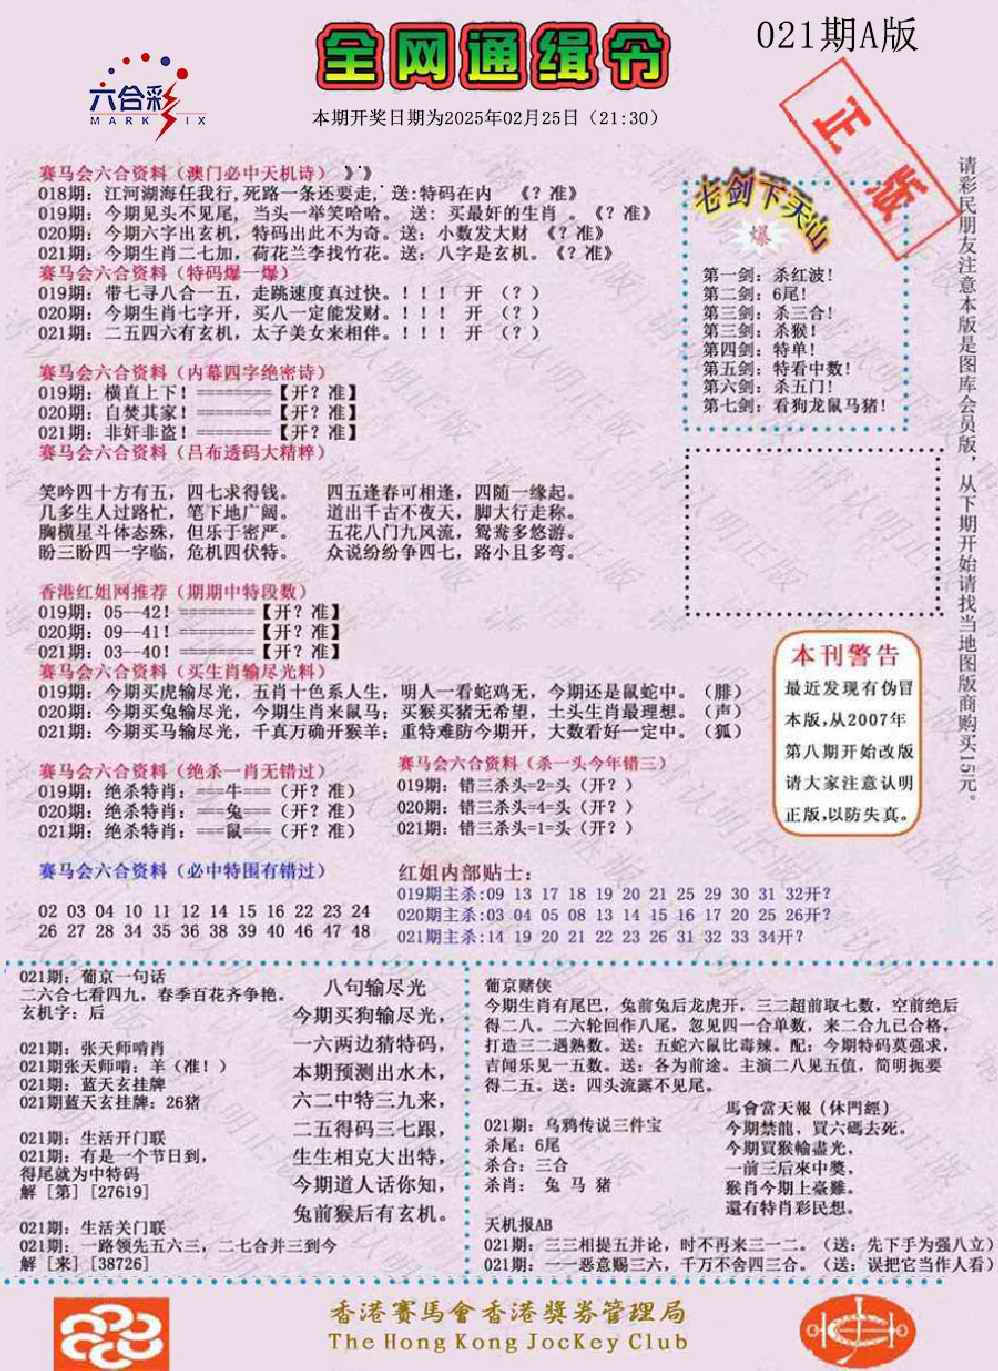 021期A版
全网通缉令
六合彩
MARK SIX
本期开奖日期为2025年02月25日（21:30）
正版
赛马会六合资料（澳门必中天机诗）》》
018期：江河湖海任我行,死路一条还要走,送:特码在内 《？准》
019期：今期见头不见尾，当头一举笑哈哈。送：买最奸的生肖 。《？准》
020期：今期六字出玄机，特码出此不为奇。送：小数发大财 《？准》
021期：今期生肖二七加，荷花兰李找竹花。送：八字是玄机。《？准》
赛马会六合资料（特码爆一爆）
019期：带七寻八合一五，走跳速度真过快。！！！ 开 （？）
020期：今期生肖七字开，买八一定能发财。！！！ 开 （？）
021期：二五四六有玄机，太子美女来相伴。！！！ 开 （？）
赛马会六合资料（内幕四字绝密诗）
019期：横直上下！========【开？准】
020期：自焚其家！========【开？准】
021期：非奸非盗！========【开？准】
赛马会六合资料（吕布透码大精粹）
笑吟四十方有五，四七求得钱。 四五逢春可相逢，四随一缘起。
几多生人过路忙，笔下地广阔。 道出千古不夜天，脚大行走称。
胸横星斗体态殊，但乐于密严。 五花八门九风流，鸳鸯多悠游。
盼三盼四一字临，危机四伏特。 众说纷纷争四七，路小且多弯。
香港红姐网推荐（期期中特段数）
019期：05--42！========【开？准】
020期：09--41！========【开？准】
021期：03--40！========【开？准】
赛马会六合资料（买生肖输尽光料）
019期：今期买虎输尽光，五肖十色系人生，明人一看蛇鸡无，今期还是鼠蛇中。（腓）
020期：今期买兔输尽光，今期生肖来鼠马；买猴买猪无希望，土头生肖最理想。（声）
021期：今期买马输尽光，千真万确开猴羊；重特难防今期开，大数看好一定中。（狐）
赛马会六合资料（绝杀一肖无错过）
019期：绝杀特肖：===牛===（开？准）
020期：绝杀特肖：===兔===（开？准）
021期：绝杀特肖：===鼠===（开？准）
赛马会六合资料（杀一头今年错三）
019期：错三杀头=2=头（开？）
020期：错三杀头=4=头（开？）
021期：错三杀头=1=头（开？）
赛马会六合资料（必中特围有错过）
02 03 04 10 11 12 14 15 16 22 23 24
26 27 28 34 35 36 38 39 40 46 47 48
红姐内部贴士：
019期主杀:09 13 17 18 19 20 21 25 29 30 31 32开？
020期主杀:03 04 05 08 13 14 15 16 17 20 25 26开？
021期主杀:14 19 20 21 22 23 26 31 32 33 34开？
七剑下天山
爆
第一剑：杀红波！
第二剑：6尾！
第三剑：杀三合！
第三剑：杀猴！
第四剑：特单！
第五剑：特看中数！
第六剑：杀五门！
第七剑：看狗龙鼠马猪！
请彩民朋友注意本版是图库会员版，从下期开始请找当地图版商购买15元。
本刊警告
最近发现有伪冒
本版,从2007年
第八期开始改版
请大家注意认明
正版,以防失真。
021期：葡京一句话
二六合七看四九，春季百花齐争艳。
玄机字：后
021期：张天师啃肖
021期张天师啃：羊（准！）
021期：蓝天玄挂牌
021期蓝天玄挂牌：26猪
021期：生活开门联
021期：有是一个节日到，
得尾就为中特码
解［第］[27619]
021期：生活关门联
021期：一路领先五六三，二七合并三到今
解［来］[38726]
八句输尽光
今期买狗输尽光，
一六两边猜特码，
本期预测出水木，
六二中特三九来，
二五得码三七跟，
生生相克大出特，
今期道人话你知，
兔前猴后有玄机。
葡京赌侠
今期生肖有尾巴，兔前兔后龙虎开，三二超前取七数，空前绝后
得二八。二六轮回作八尾，忽见四一合单数，来二合九已合格，
打造三二遇熟数。送：五蛇六鼠比毒辣。配：今期特码莫强求，
吉闻乐见一五数。送：各为前途。主演二八见五值，简明扼要
得二五。送：四头流露不见尾。
021期：乌鸦传说三件宝
杀尾：6尾
杀合：三合
杀肖： 兔 马 猪
馬會當天報（休門經）
今期禁龍，買六碼去死。
今期買猴輸盡光，
一前三后來中獎，
猴肖今期上臺難。
還有特肖彩民想。
天机报AB
021期：三三相提五并论，时不再来三一二。（送：先下手为强八立）
021期：一一恶意赐三六，千万不舍四三合。（送：误把它当作人看）
香港賽馬會香港獎券管理局
The Hong Kong JocKey Club